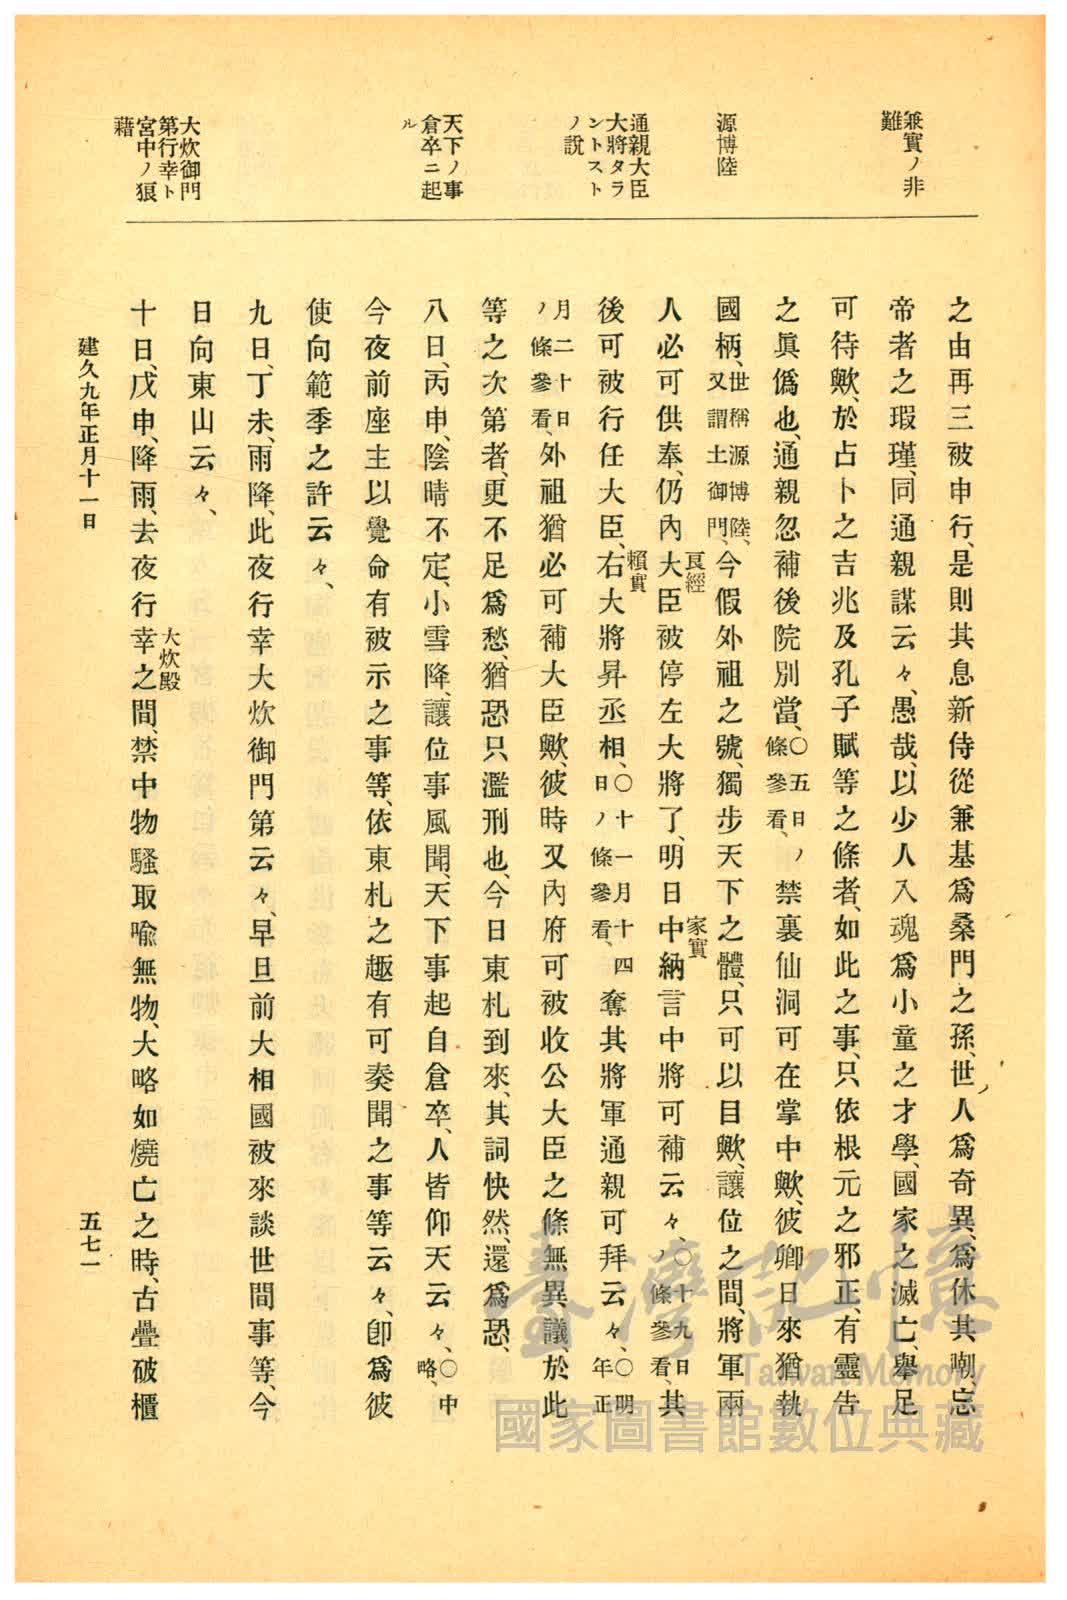 兼實ノ非
難
源博陸
通親大臣
大將タラ
ントスト
ノ說
天下ノ事
倉卒ニ起
ル
大炊御門
第行幸ト
宮中ノ狼
藉
之由再三被申行、是則其息新侍從兼基爲桑門之孫、世人爲奇異、爲休其嘲、忘
帝者之瑕瑾、同通親謀云々、愚哉、以少人入魂爲小童之才學、國家之滅亡、舉足
可待歟、於占卜之吉兆及孔子賦等之條者、如此之事、只依根元之邪正、有靈告
之眞僞也、通親忽補後院別當、〇五日ノ條參看、禁裏仙洞可在掌中歟、彼卿日來猶執
國柄、世稱源博陸、又謂土御門、今假外祖之號、獨步天下之體、只可以目歟、讓位之間、將軍兩
人必可供奉、仍內大臣良經被停左大將了、明日中納言家實中將可補云々、〇十九日ノ條參看、其
後可被行任大臣、右大將賴實昇丞相、〇十一月十四日ノ條參看、奪其將軍通親可拜云々、〇明年正
月二十日ノ條參看、外祖猶必可補大臣歟、彼時又內府可被收公大臣之條無異議、於此
等之次第者、更不足爲愁、猶恐只濫刑也、今日東札到來、其詞快然、還爲恐、
八日、丙申、陰晴不定、小雪降、讓位事風聞、天下事起自倉卒、人皆仰天云々、〇中略、
今夜前座主以覺命有被示之事等、依東札之趣有可奏聞之事等云々、卽爲彼
使向範季之許云々、
九日、丁未、雨降、此夜行幸大炊御門第云々、早旦前大相國被來談世間事等、今
日向東山云々、
十日、戊申、降雨、去夜行幸大炊殿之間、禁中物騷取喩無物、大略如燒亡之時、古疊破櫃
建久九年正月十一日
五七一
臺灣記憶
Taiwan Memory
國家圖書館數位典藏